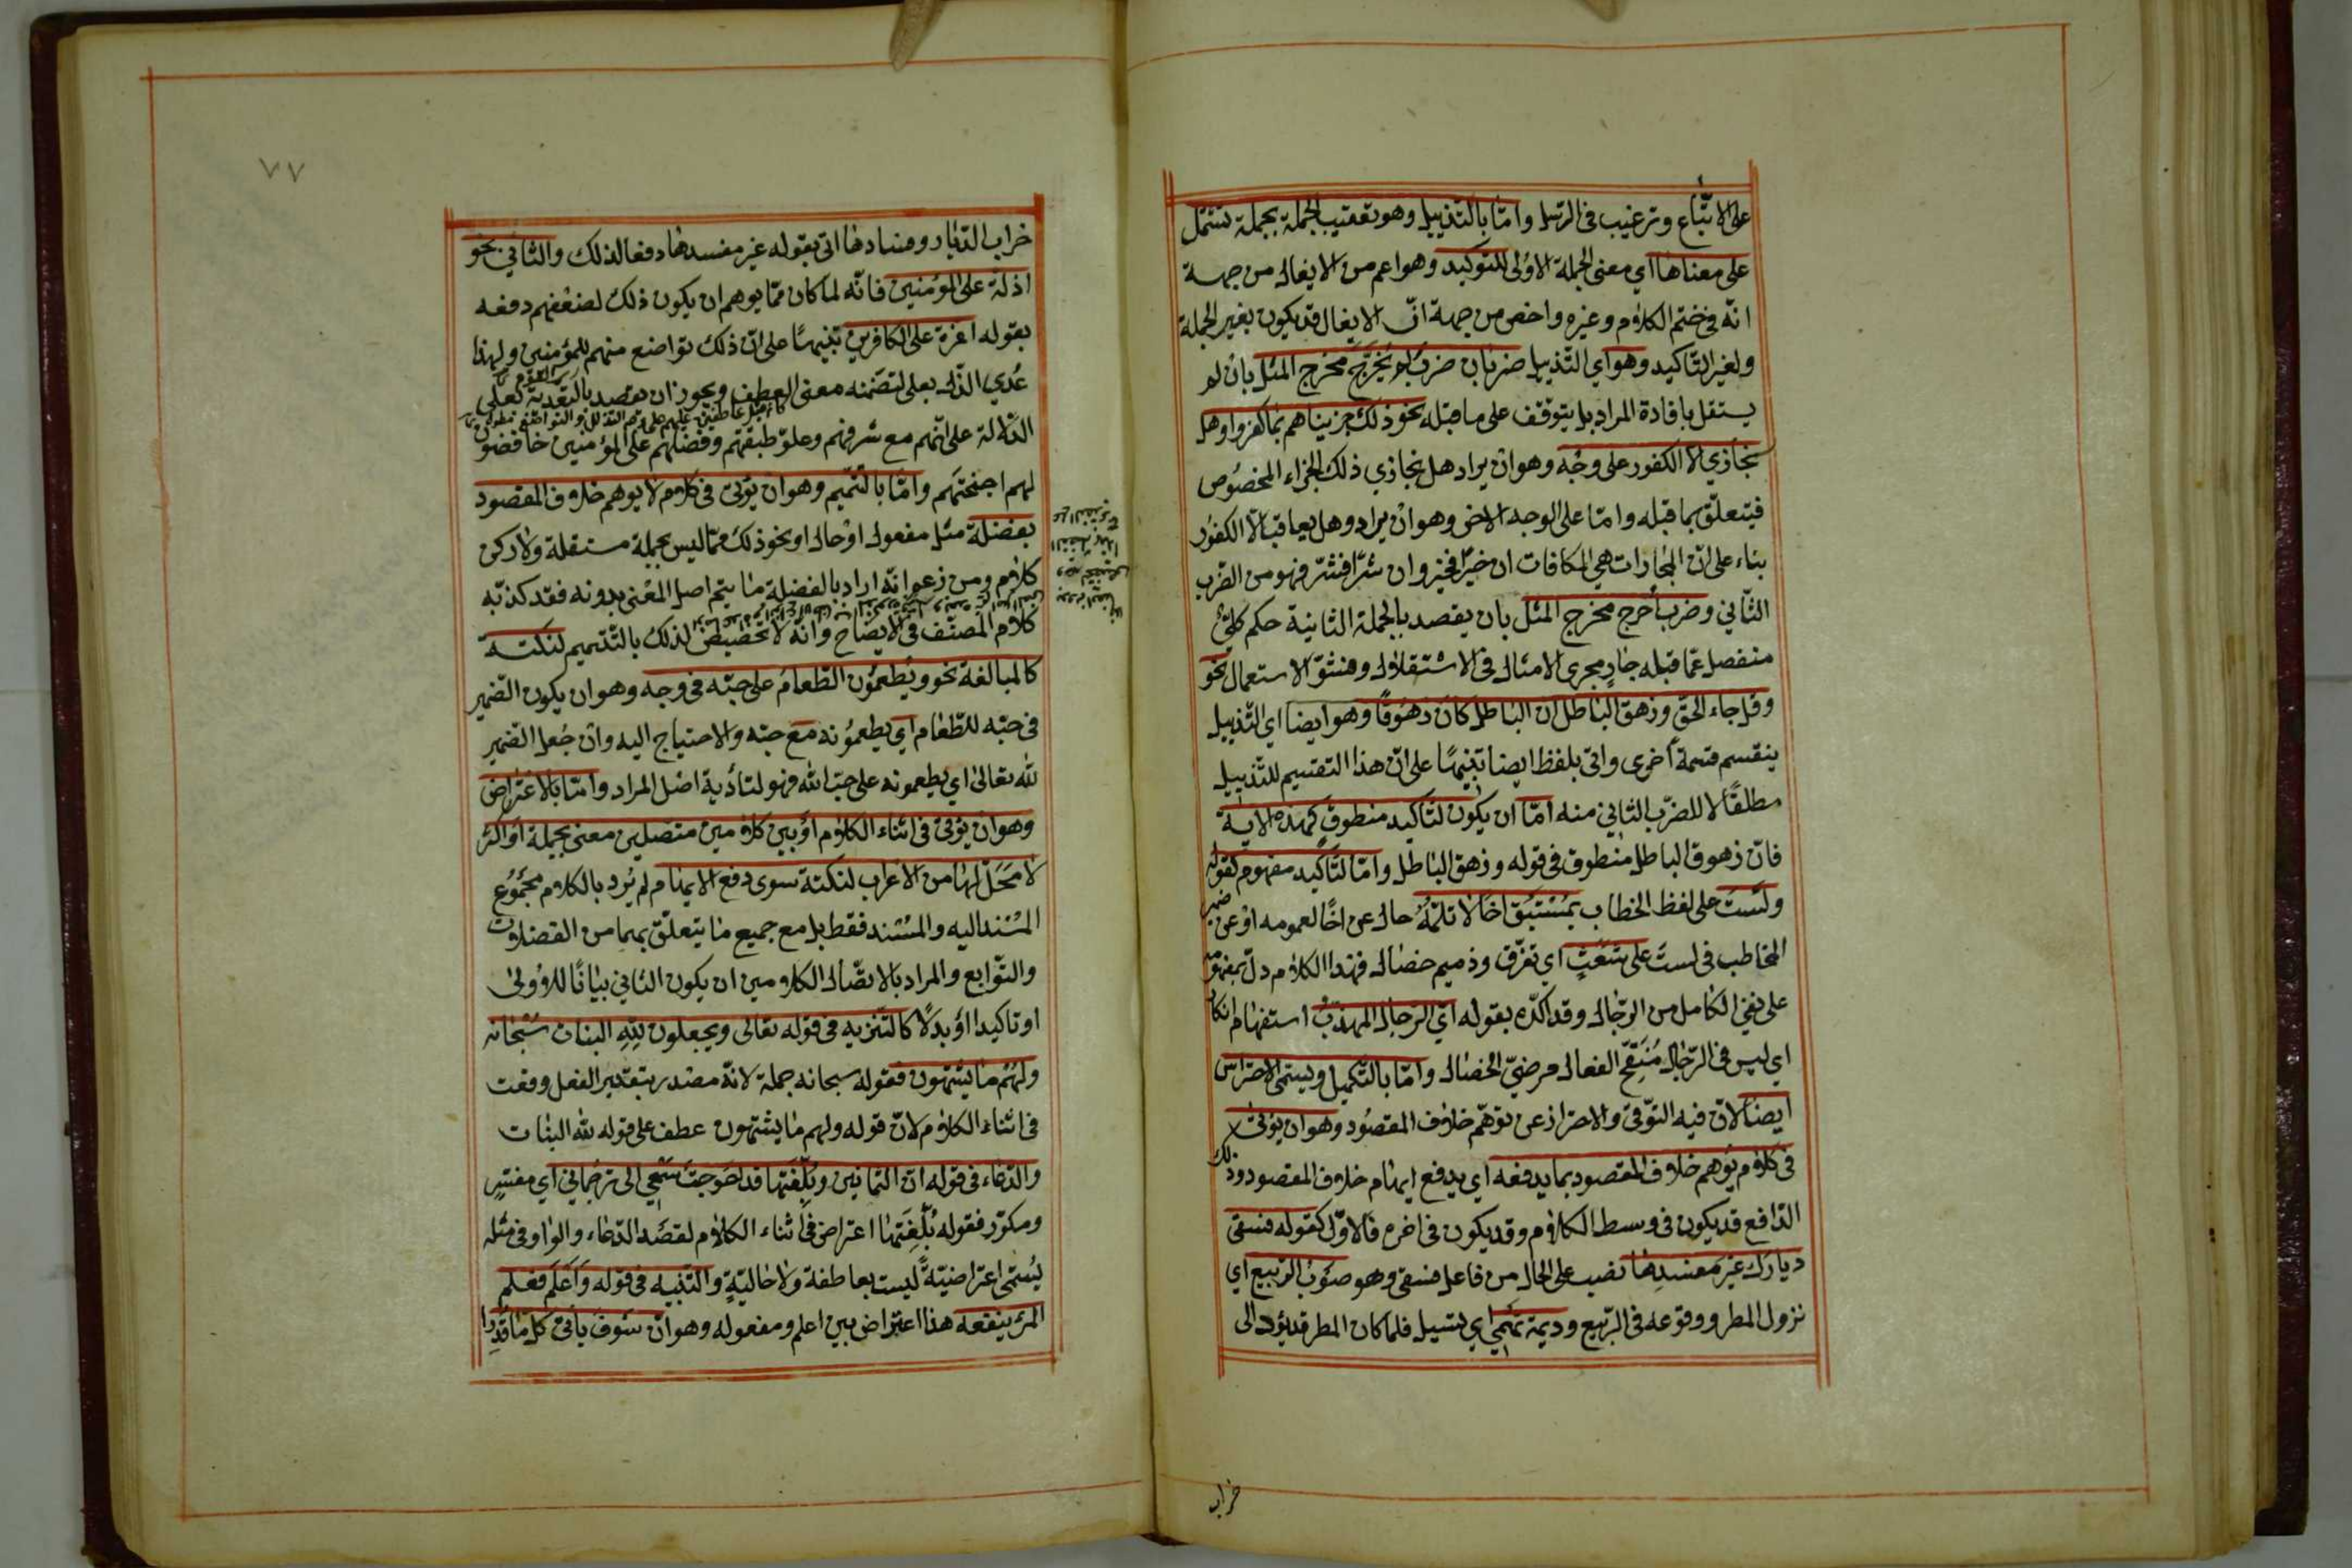 على الاتّباع وترغيب في الرسل وامّا بالتذييل وهو تعقيب الجملة بجملة تشتمل
على معناها اي معنى الجملة الاولى للتوكيد وهو اعم من الايغال من جهة
انّه في ختم الكلام وغيره واخص من جهة انّ الايغال قد يكون بغير الجملة
ولغير التّاكيد وهو اي التّذييل ضربان ضرب لم يُخرَج مخرج المثل بان لم
يستقل بافادة المراد بل يتوقّف على ما قبله نحو ذلك جزيناهم بما كفروا وهل
نجازي الّا الكفور على وجه وهو ان يراد هل نجازي ذلك الجزاء المخصوص
فيتعلّق بما قبله وامّا على الوجه الاخر وهو ان يراد وهل يعاقب الّا الكفور
بناء على انّ المجازات هي المكافات ان خيرًا فخير وان شرًّا فشرّ فهو من الضّرب
الثّاني وضرب أخرج مخرج المثل بان يقصد بالجملة الثانية حكم كلّيّ
منفصل عمّا قبله جارٍ مجرى الامثال في الاستقلال وفشوّ الاستعمال نحو
وقل جاء الحقّ وزهق الباطل ان الباطل كان زهوقًا وهو ايضا اي التّذييل
ينقسم قسمة أخرى واتى بلفظ ايضا تنبيهًا على انّ هذا التقسيم للتّذييل
مطلقًا لا للضّرب الثاني منه امّا ان يكون لتاكيد منطوقٍ كهذه الاية
فانّ زهوق الباطل منطوق في قوله وزهق الباطل وامّا لتاكيد مفهوم كقوله
ولستَ على لفظ الخطاب بمستبقٍ اخًا لا تلمّهُ حال عن اخًا لعمومه او عن ضمير
المخاطب في لستَ على شعثٍ اي تفرّق وذميم خصال فهذا الكلام دلّ بمفهومه
على نفي الكامل من الرّجال وقد اكّده بقوله ايّ الرّجال المهذّبُ استفهام انكار
اي ليس في الرّجال مُنقّح الفعال مرضيّ الخصال وامّا بالتّكميل ويسمّى الاحتراس
ايضا لانّ فيه التوّقي والاحتراز عن توهّم خلاف المقصود وهو ان يؤتى
في كلام يوهم خلاف المقصود بما يدفعه اي يدفع ايهام خلاف المقصود وذلك
الدّافع قد يكون في وسط الكلام وقد يكون في اخره فالاوّل كقوله فسقى
ديارك غير مفسدها نصب على الحال من فاعل فسقى وهو صوب الرّبيع اي
نزول المطر ووقوعه في الرّبيع وديمة تهمي اي تسيل فلما كان المطر قد يؤل الى
خراب
٧٧
خراب الدّيار وفسادها اتى بقوله غير مفسدها دفعا لذلك والثاني نحو
اذلة على المؤمنين فانّه لما كان ممّا يوهم ان يكون ذلك لضعفهم دفعه
بقوله اعزة على الكافرين تنبيهًا على انّ ذلك تواضع منهم للمؤمنين ولهذا
عُدي الذّل بعلى لتضمّنه معنى العطف ويجوز ان يقصد بالتّعدية بعلى
الدّلالة على انّهم مع شرفهم وعلوّ طبقتهم وفضلهم على المؤمنين خافضون
لهم اجنحتهم وامّا بالتّتميم وهو ان يؤتى في كلام لا يوهم خلاف المقصود
بفضلة مثل مفعول او حال او نحو ذلك ممّا ليس بجملة مستقلة ولا ركن
كلام ومن زعم انّه اراد بالفضلة ما يتم اصل المعنى بدونه فقد كذّبه
كلام المصنّف في الايضاح وانّه لا تخصيص لذلك بالتّتميم لنكتة
كالمبالغة نحو ويُطعمُون الطّعامَ على حبّه في وجه وهو ان يكون الضّمير
في حبّه للطّعام اي يطعمُونه مع حبّه والاحتياج اليه وان جُعل الضّمير
لله تعالى اي يطعمونه على حبّ الله فهو لتأدية اصل المراد وامّا بالاعتراض
وهو ان يؤتى في اثناء الكلام او بين كلامين متّصلين معنى بجملة او اكثر
لا محلّ لها من الاعراب لنكتة سوى دفع الايهام لم يُرد بالكلام مجموع
المسند اليه والمسند فقط بل مع جميع ما يتعلّق بهما من الفضلات
والتّوابع والمراد بالاتّصال الكلامين ان يكون الثاني بيانًا للاولى
او تاكيدا او بدلًا كالتّنزيه في قوله تعالى ويجعلون لِلّهِ البنات سبحانه
ولهُم ما يشتهون فقوله سبحانه جملة لانّه مصدر بتقدير الفعل وقعت
في اثناء الكلام لانّ قوله ولهم ما يشتهون عطف على قوله لله البنات
والدّعاء في قوله انّ الثّمانين وبُلّغتها قد احوجت سمعي الى ترجمانٍ اي مفسّرٍ
ومكرّر فقوله بُلّغتها اعتراض في اثناء الكلام لقصد الدّعاء والواو في مثله
يُسمّى اعتراضيّةً ليست بعاطفة ولا حاليّةٍ والتّنبيه في قوله واعلم فعلم
المرء ينفعه هذا اعتراض بين اعلم ومفعوله وهو ان سوف يأتي كلّ ما قُدِرا